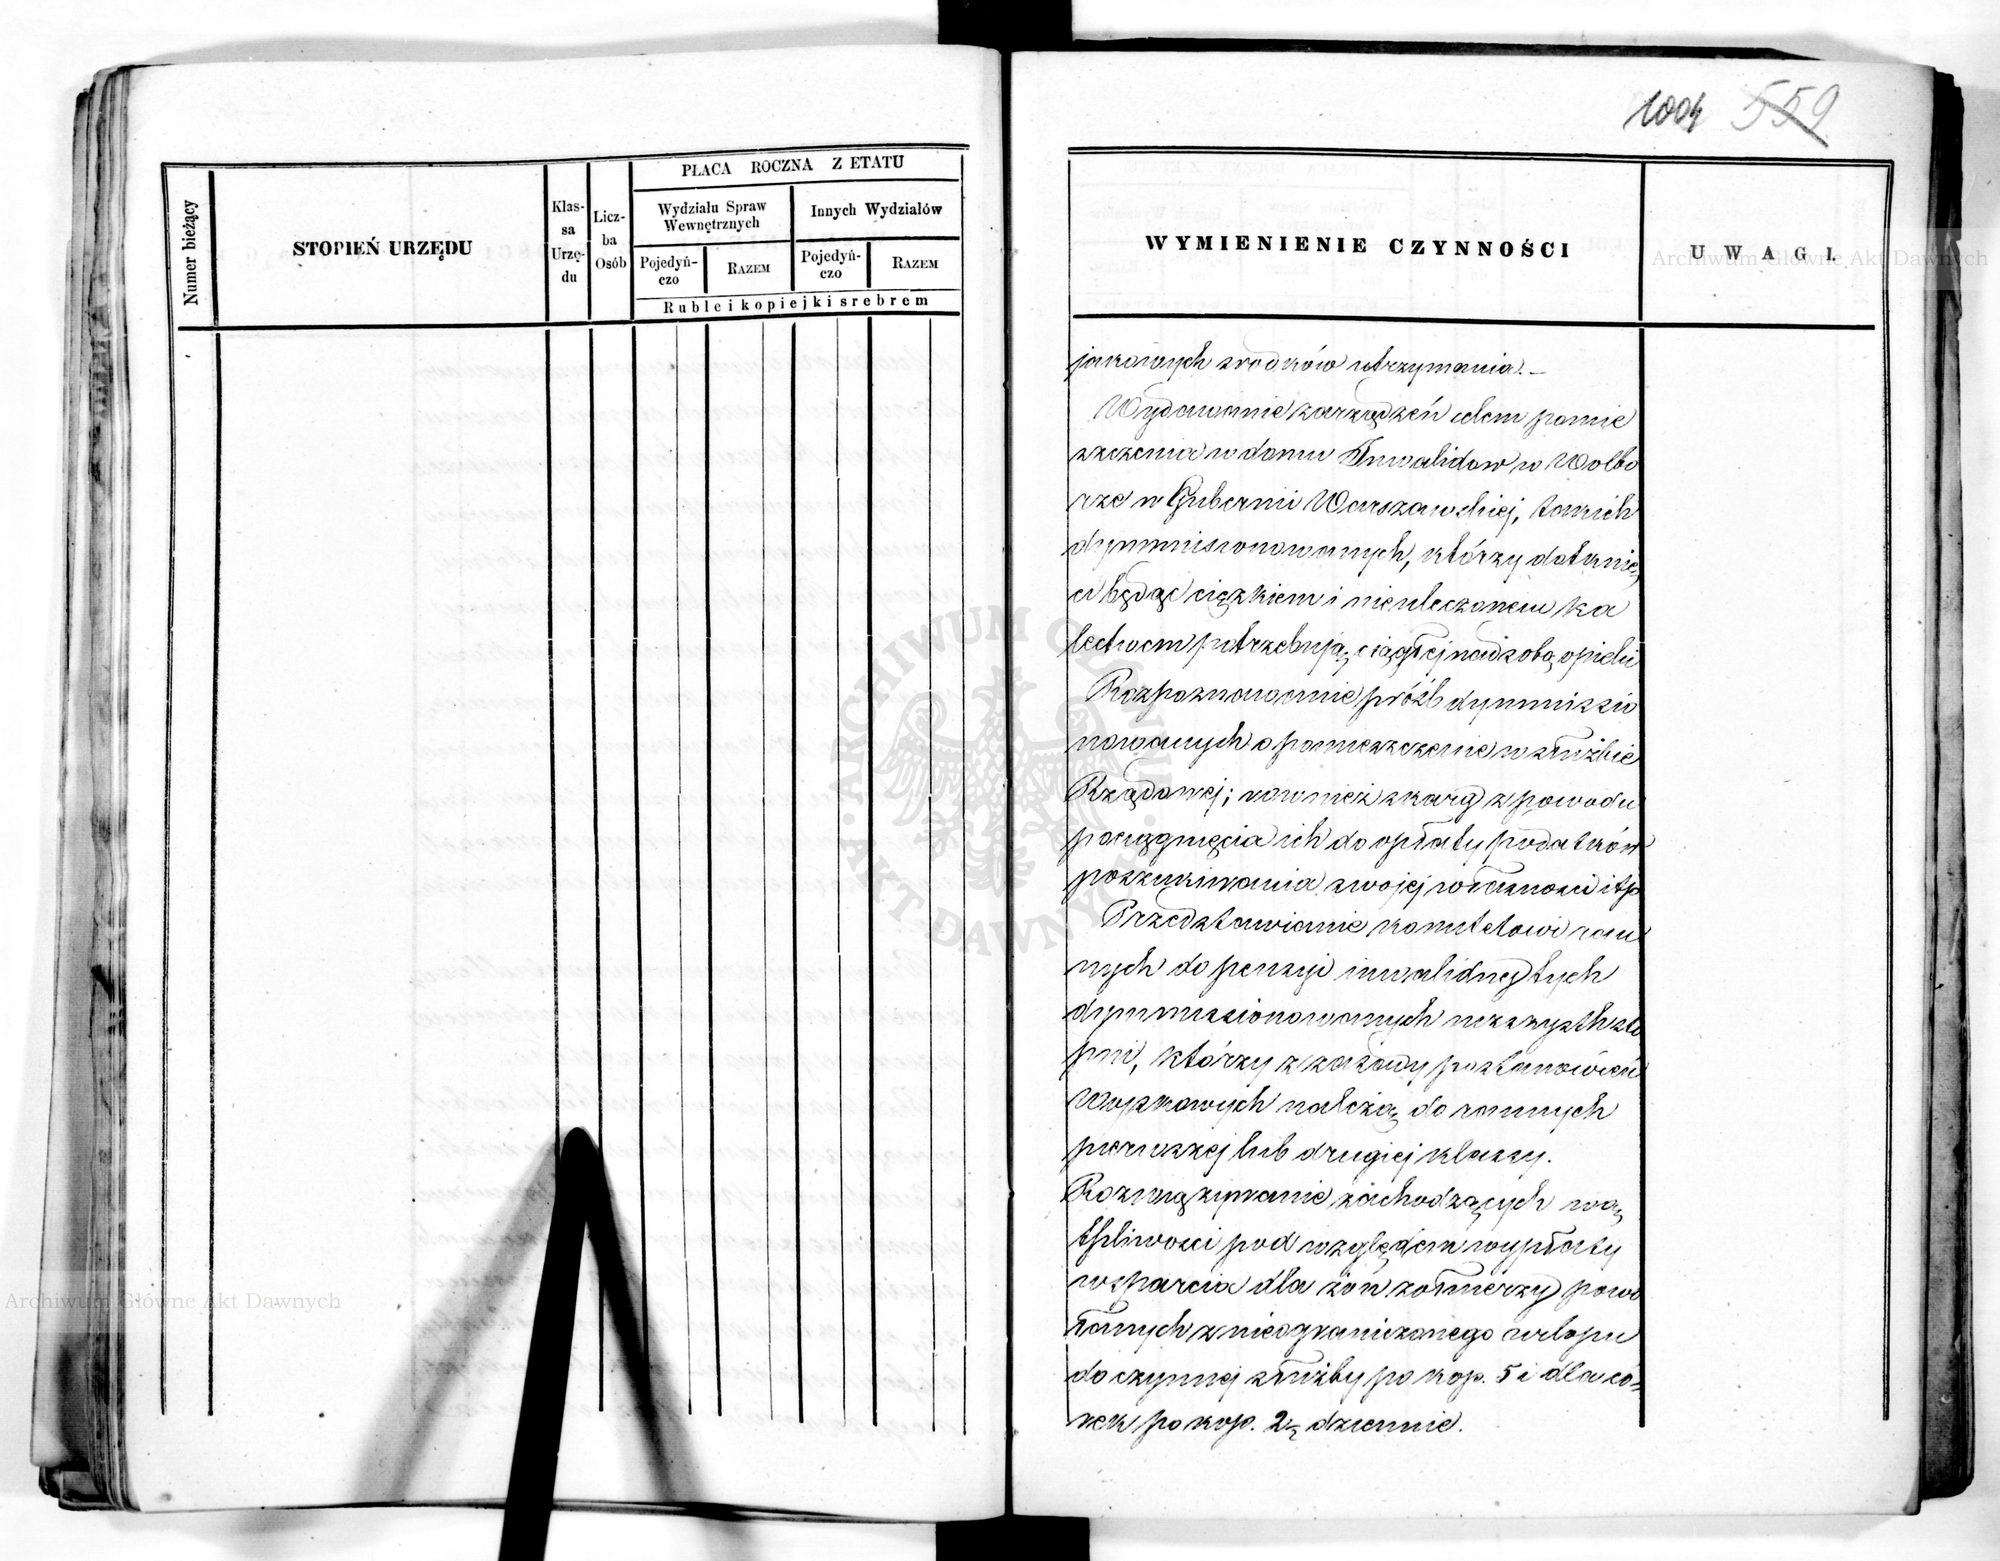 1004 559
Numer bieżący
STOPIEŃ URZĘDU
Klas-
sa
Urzę-
du
Licz-
ba
Osób
PŁACA ROCZNA Z ETATU
Wydziału Spraw
Wewnętrznych
Innych Wydziałów
Pojedyń-
czo
RAZEM
Pojedyń-
czo
RAZEM
Ruble i kopiejki srebrem
WYMIENIENIE CZYNNOŚCI
UWAGI.
jakowych srodków utrzymania. –
Wydawanie zarządzeń celem pomie
szczenia w domu Inwalidow w Wolbo
rze w Gubernii Warszawskiej, takich
dymmisionowanych, którzy dotknię
ci będąc ciężkiem i nieuleczonem ka
lectwem potrzebują ciągłej nad sobą opieki
Rozpoznawanie próźb dymmissio
nowanych o pomieszczenie w służbie
Rządowej; rownież skarg z powodu
pociągnięcia ich do opłaty podatków
poszukiwania swojej własności itp
Przedstawianie komitetowi ran
nych do pensyi inwalidnej tych
dymmissionowanych wszystk sto
pni, którzy z zasady postanowień
Wojskowych należą do rannych
pierwszej lub drugiej klassy.
Rozwiązywanie zachodzących wą
tpliwosci pod względem wypłaty
wsparcia dla żon zołnierzy powo
łanych z nieograniczonego urlopu
do czynnej służby po kop. 5 i dla có-
rek po kop. 2½ dziennie.
Archiwum Główne Akt Dawnych
Archiwum Główne Akt Dawnych
ARCHIWUM GŁÓWNE AKT DAWNYCH